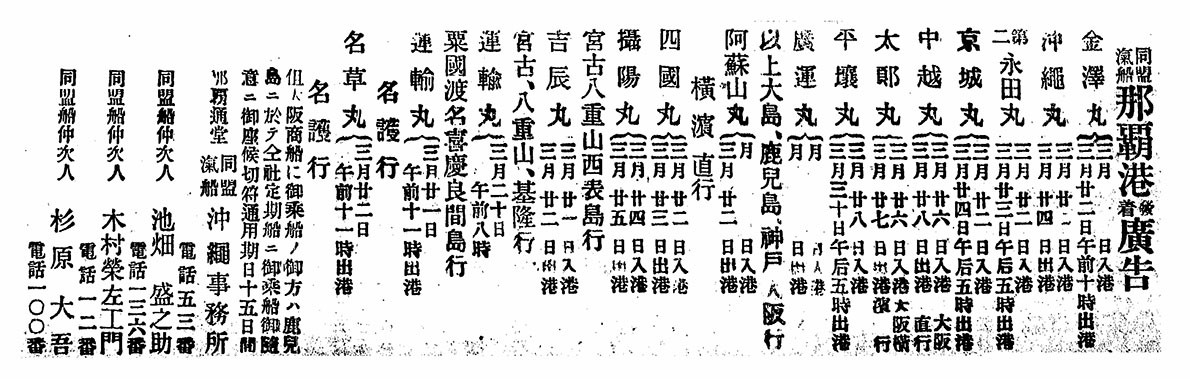 同盟汽船那覇港發着廣告
金澤丸 三月 日入港
三月廿二日午前十時出港
沖繩丸 三月廿一日入港
三月廿四日出港
第二永田丸 三月廿二日入港
三月廿三日午后五時出港
京城丸 三月廿一日入港
三月廿四日午后五時出港
中越丸 三月廿六日入港 大阪
三月廿八出港 直行
太郎丸 三月廿六日入港大阪橫
三月廿七日出港濱行
平壤丸 三月廿八入港
三月三十日午后五時出港
廣運丸 月 日入港
月 日出港
以上大島、鹿兒島、神戶、大阪行
阿蘇山丸 月 日入港
三月廿二日出港
橫濱直行
四國丸 三月廿二日入港
三月廿三日出港
攝陽丸 三月廿四日入港
三月廿五日出港
宮古八重山西表島行
吉辰丸 三月廿一日入港
三月廿二日出港
宮古、八重山、基隆行
運輸丸 三月二十日
午前八時
粟國渡名喜慶良間島行
運輸丸 三月廿一日
午前十一時出港
名護行
名草丸 三月廿二日
午前十一時出港
名護行
但大阪商船に御乘船ノ御方ハ鹿兒
島ニ於テ仝社定期船ニ御乘船御隨
意ニ御座候切符通用期日十五日間
那覇通堂 同盟汽船 沖繩事務所
同盟船仲次人 池畑盛之助
電話五三番
同盟船仲次人 木村榮左工門
電話一三六番
同盟船仲次人 杉原大吾
電話一二番
電話一〇〇番